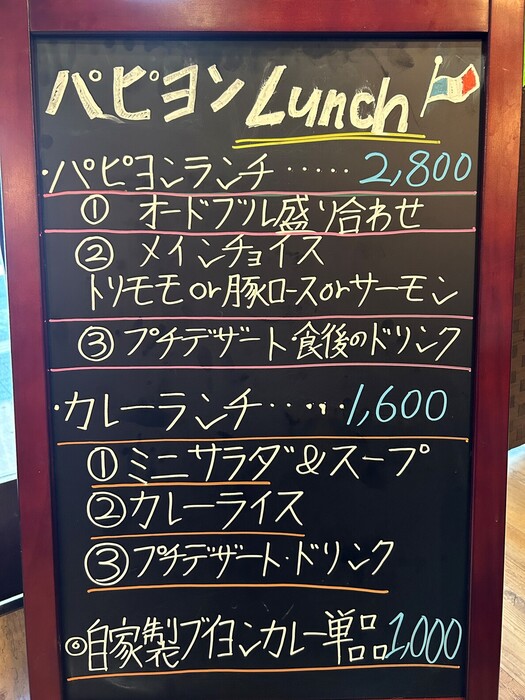 パピヨン Lunch
・パピヨンランチ・・・・・2,800
① オードブル盛り合わせ
② メインチョイス
トリモモor豚ロースorサーモン
③ プチデザート・食後のドリンク
・カレーランチ・・・・・1,600
① ミニサラダ&スープ
② カレーライス
③ プチデザート・ドリンク
◎自家製ブイヨンカレー単品1,000